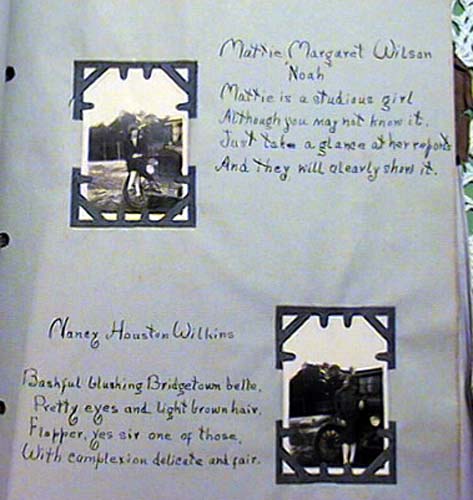 Mattie Margaret Wilson
"Noah"
Mattie is a studious girl
Although you may not know it.
Just take a glance at her reports
And they will clearly show it.
Nancy Houston Wilkins
Bashful blushing Bridgetown belle,
Pretty eyes and light brown hair,
Flapper, yes sir one of those,
With complexion delicate and fair.